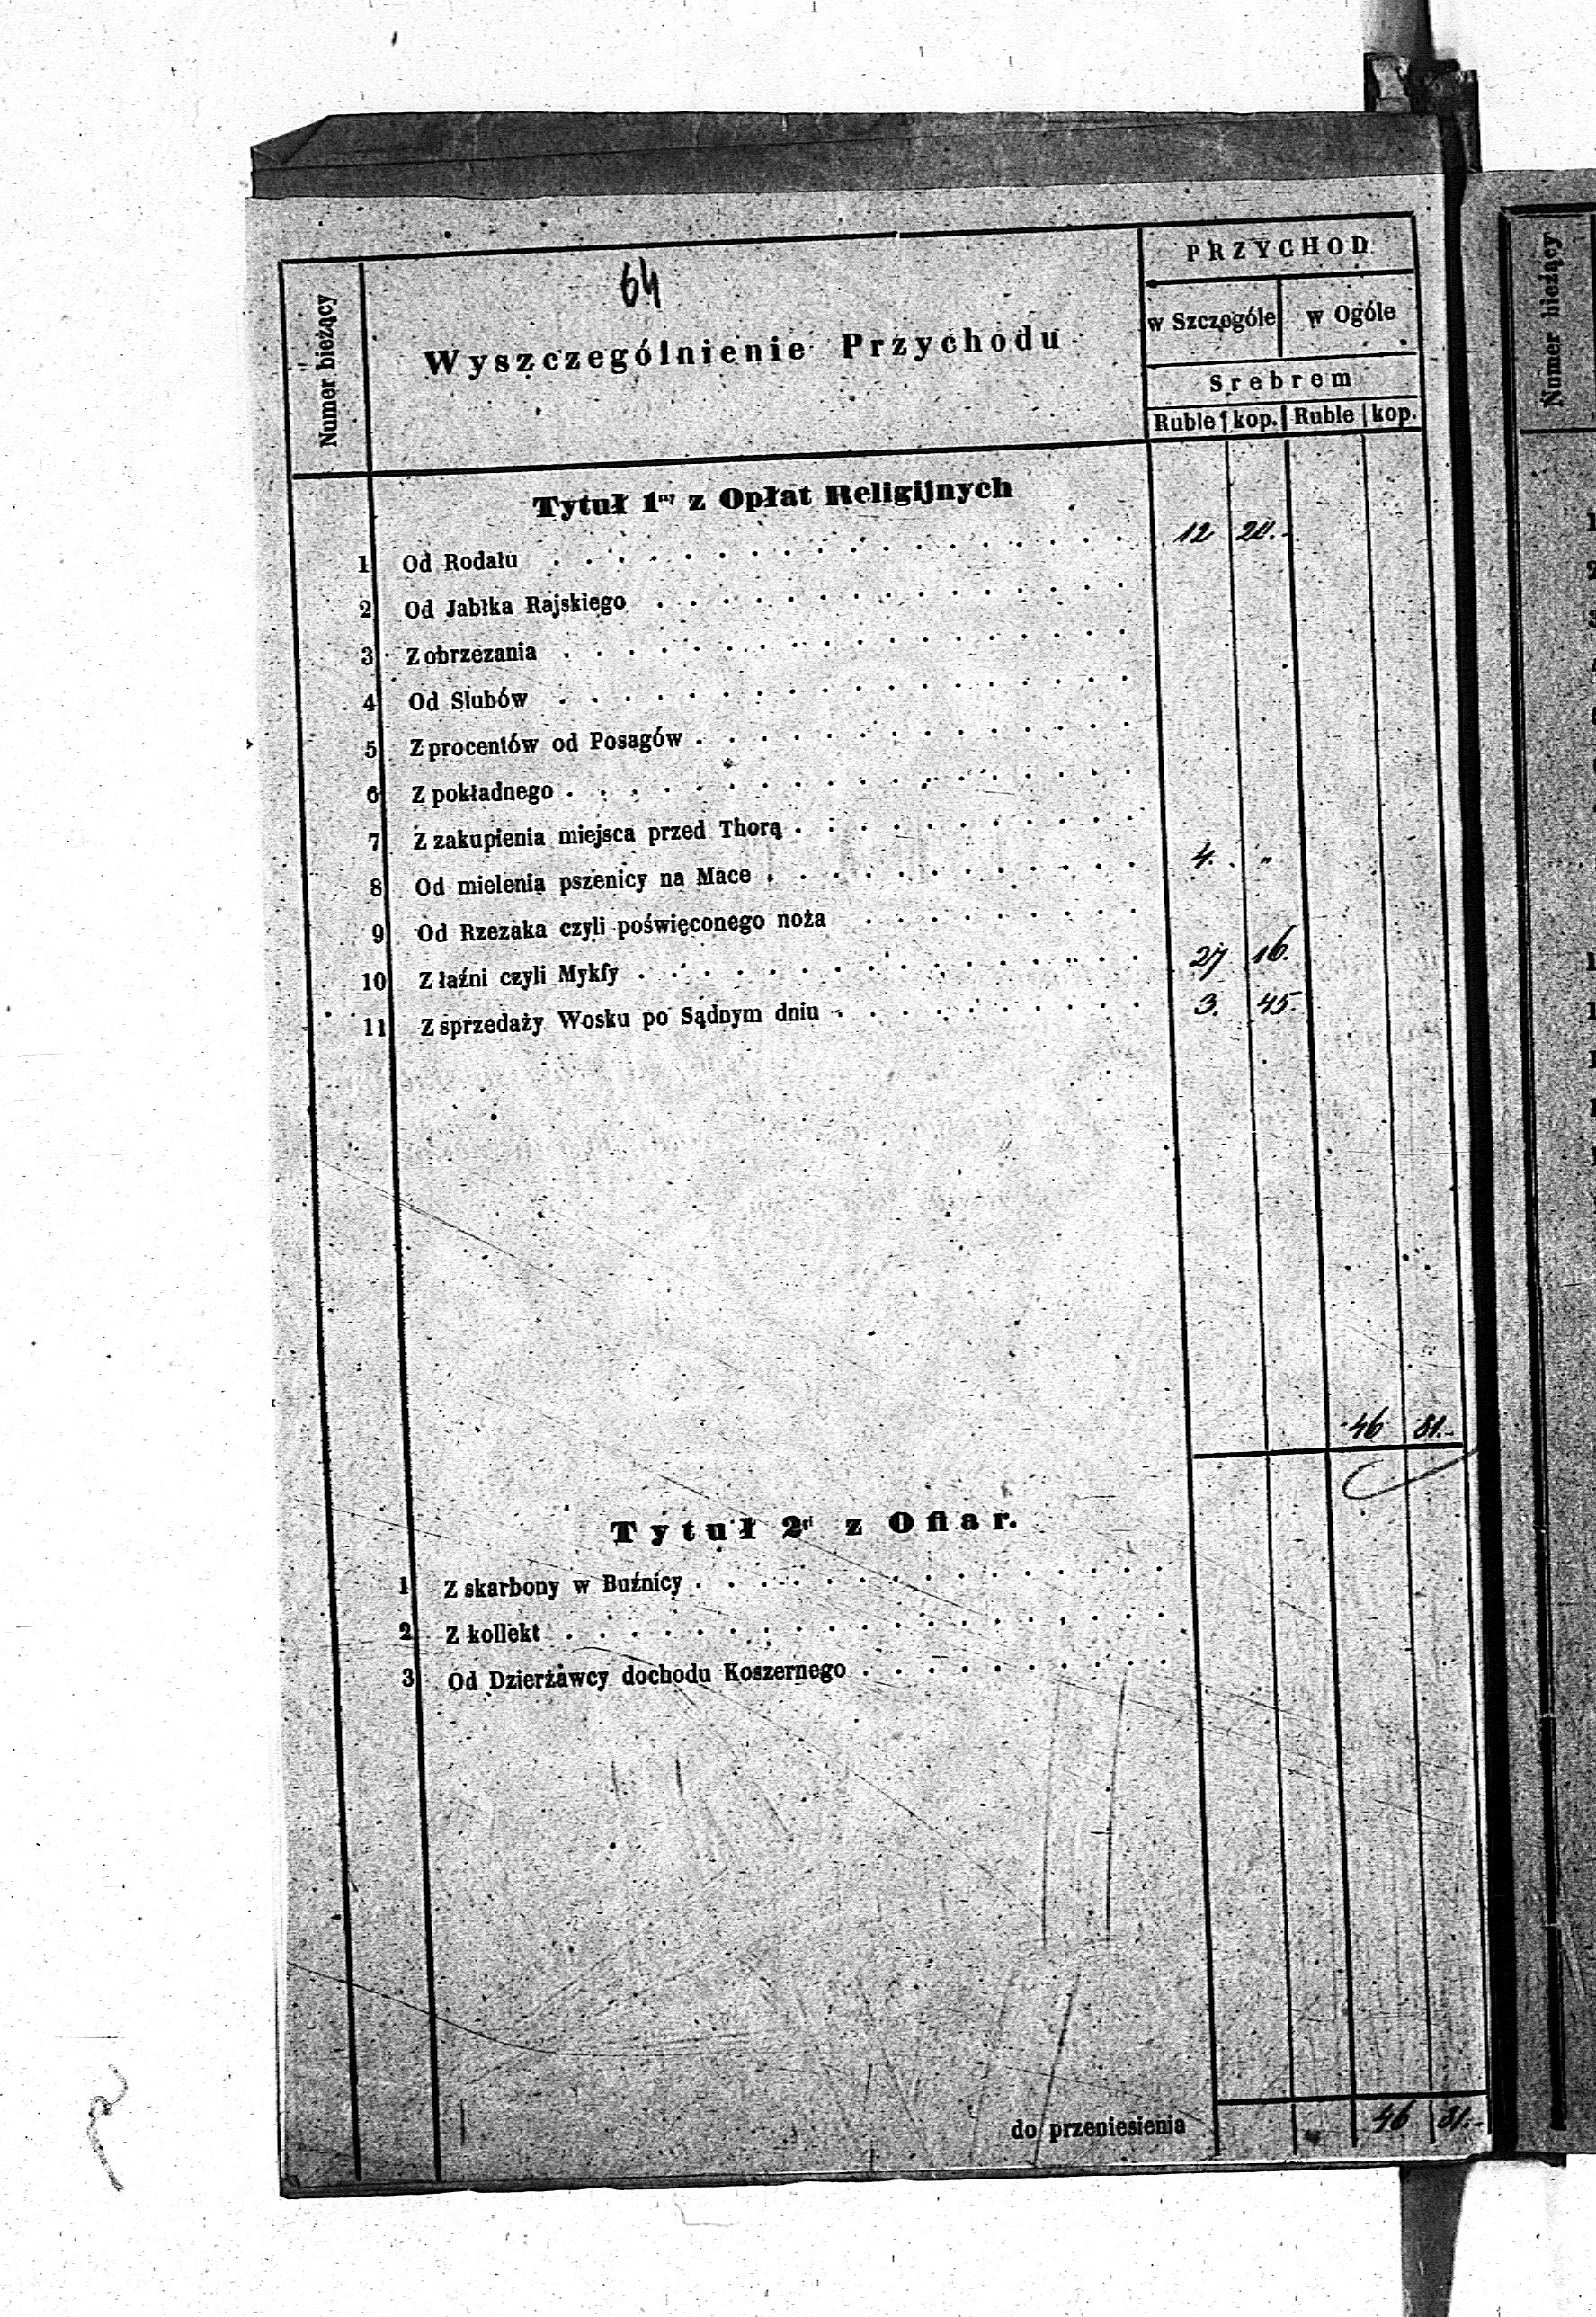 64
Numer bieżący
Wyszczególnienie Przychodu
PRZYCHOD
w Szczególe w Ogóle
Srebrem
Ruble kop. Ruble kop.
Tytuł 1ny z Opłat Religijnych
1 Od Rodału 12 20.
2 Od Jabłka Rajskiego
3 Z obrzezania
4 Od Slubów
5 Z procentów od Posagów
6 Z pokładnego
7 Z zakupienia miejsca przed Thorą
8 Od mielenia pszenicy na Mace 4. "
9 Od Rzezaka czyli poświęconego noża
10 Z łaźni czyli Mykfy 27 16.
11 Z sprzedaży Wosku po Sądnym dniu 3. 45
46 81.
Tytuł 2gi z Ofiar.
1 Z skarbony w Buźnicy
2 Z kollekt
3 Od Dzierżawcy dochodu Koszernego
do przeniesienia 46 81.
Numer bieżący